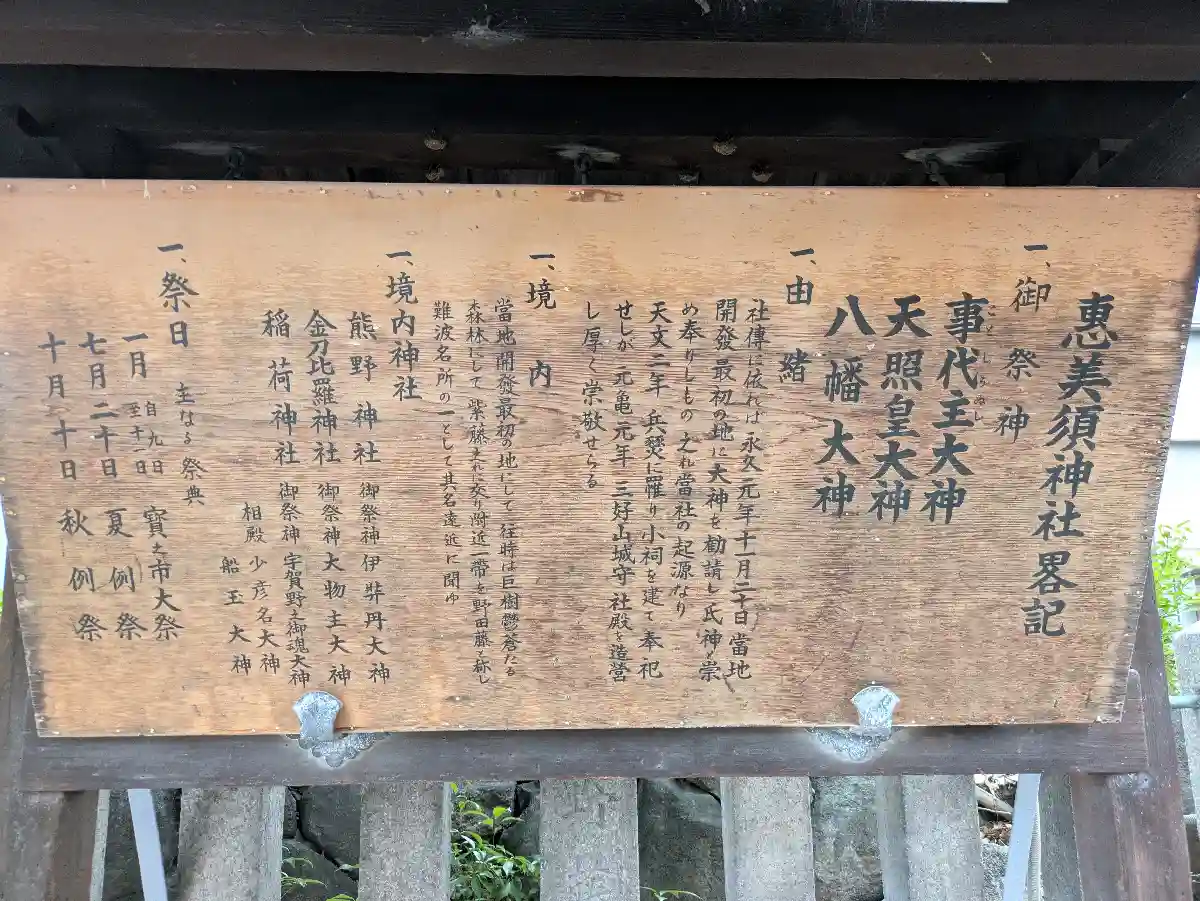 恵美須神社畧記
一、御祭神
事代主大神
ことしろぬし
天照皇大神
八幡大神
一、由緒
社傳に依れば永久元年十一月二十日當地
開發最初の地に大神を勧請し氏神と崇
め奉りしもの之れ當社の起源なり
天文二年兵燹に罹り小祠を建て奉祀
せしが元亀元年三好山城守社殿を造營
し厚く崇敬せらる
一、境内
當地開發最初の地にして往時は巨樹鬱蒼たる
森林にして紫藤之れに交り附近一帶を野田藤と称し
難波名所の一として其名遠近に聞ゆ
一、境内神社
熊野神社 御祭神 伊弉冉大神
金刀比羅神社 御祭神 大物主大神
稲荷神社 御祭神 宇賀野之御魂大神
相殿 少彦名大神
船玉大神
一、祭日 主なる祭典
一月 自九日 至十一日 寳之市大祭
七月二十日 夏例祭
十月二十日 秋例祭